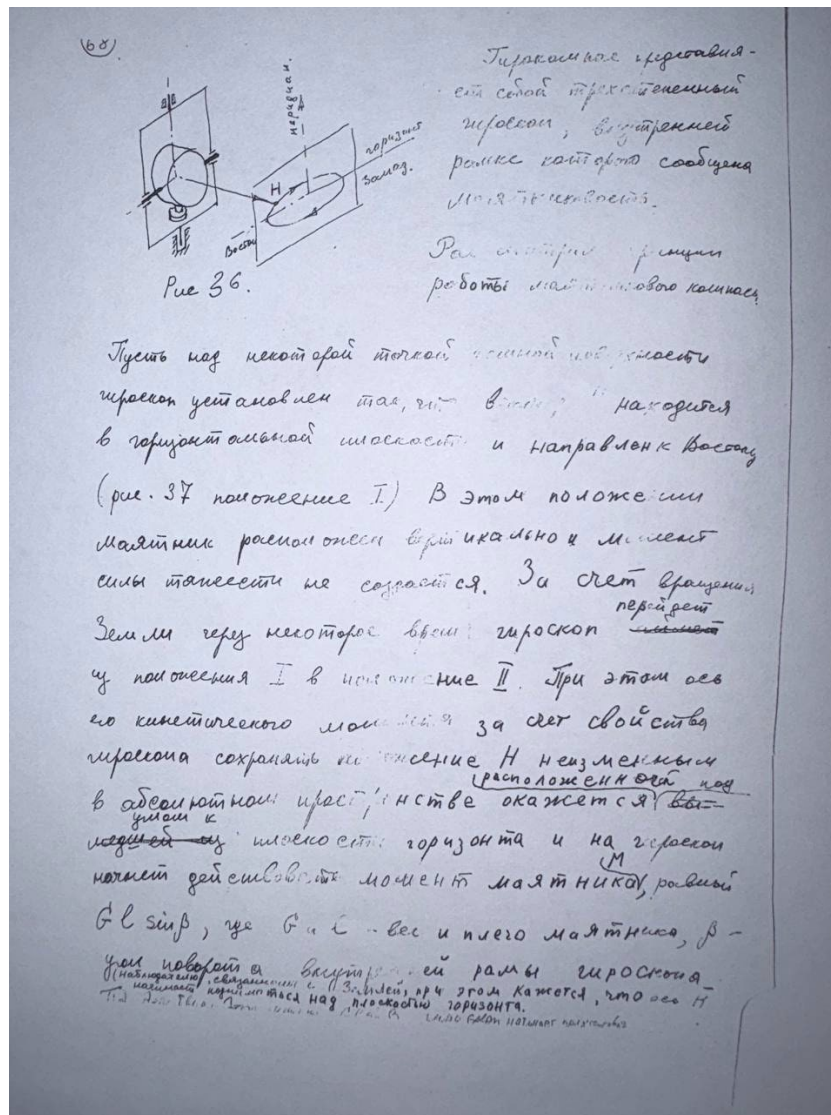 68
меридиан.
горизонт
запад.
H
Восток
Рис 36.
Гирокомпас представля-
ет собой трехстепенный
гироскоп, внутренней
рамке которого сообщена
маятниковость.
Рассмотрим принцип
работы маятникового компаса
Пусть над некоторой точкой земной поверхности
гироскоп установлен так, что находится
в горизонтальной плоскости и направлен к Востоку
(рис. 37 положение I) В этом положении
маятник расположен вертикально и момент
силы тяжести не создается. За счет вращения
перейдет
Земли через некоторое время гироскоп
из положения I в положение II. При этом ось
его кинетического момента за счет свойства
гироскопа сохранять положение H неизменным
расположенной под
в абсолютном пространстве окажется
углом к
плоскости горизонта и на гироскоп
M
начнет действовать момент маятника, равный
Gl sinβ, где G и l - вес и плечо маятника, β -
угол поворота внутренней рамы гироскопа
(наблюдателю, связанному с Землей, при этом кажется, что ось H
начинает подниматься над плоскостью горизонта.